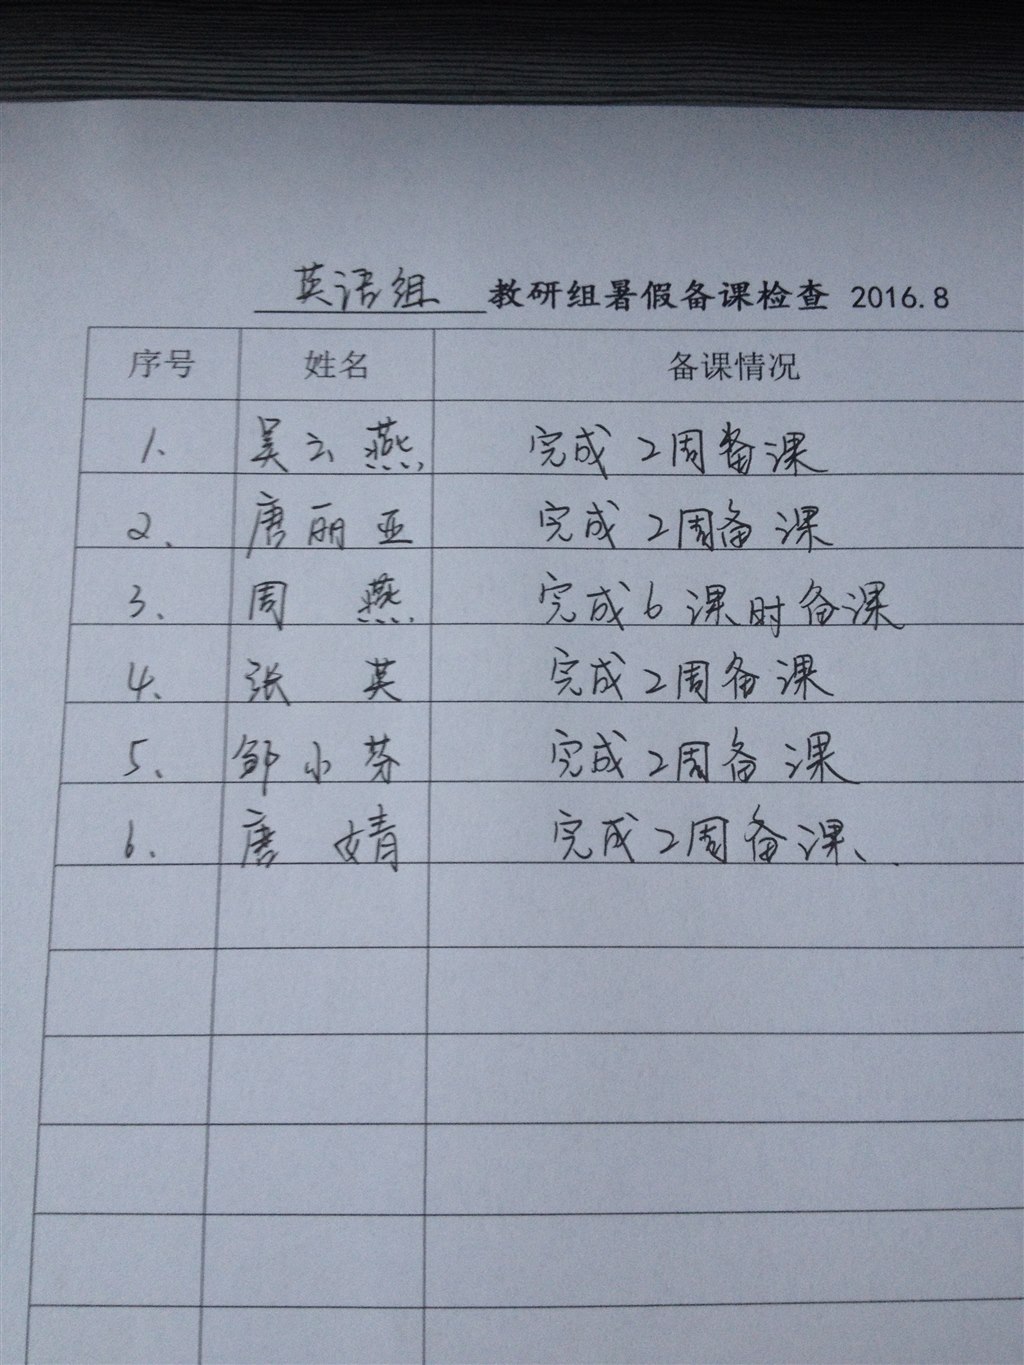 英语组 教研组暑假备课检查 2016.8
序号 姓名 备课情况
1. 吴云燕 完成2周备课
2. 唐丽亚 完成2周备课
3. 周燕 完成6课时备课
4. 张英 完成2周备课
5. 邹小芬 完成2周备课
6. 唐婧 完成2周备课、